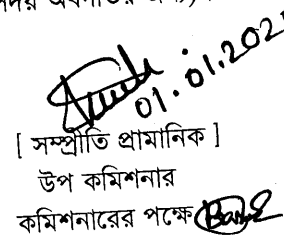 01.01.202
[ সম্প্রীতি প্রামানিক ]
উপ কমিশনার
কমিশনারের পক্ষে